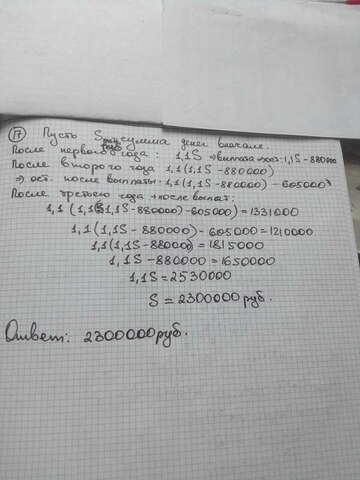 17 Пусть S руб сумма денег вначале.
После первого года: 1,1S ⇒ выплата ост: 1,1S - 880000
После второго года 1,1(1,1S - 880000)
⇒ ост. после выплаты: 1,1(1,1S - 880000) - 605000
После третьего года + после выплат:
1,1(1,1(1,1S - 880000) - 605000) = 1331000
1,1(1,1S - 880000) - 605000 = 1210000
1,1(1,1S - 880000) = 1815000
1,1S - 880000 = 1650000
1,1S = 2530000
S = 2300000 руб.
Ответ: 2300000 руб.